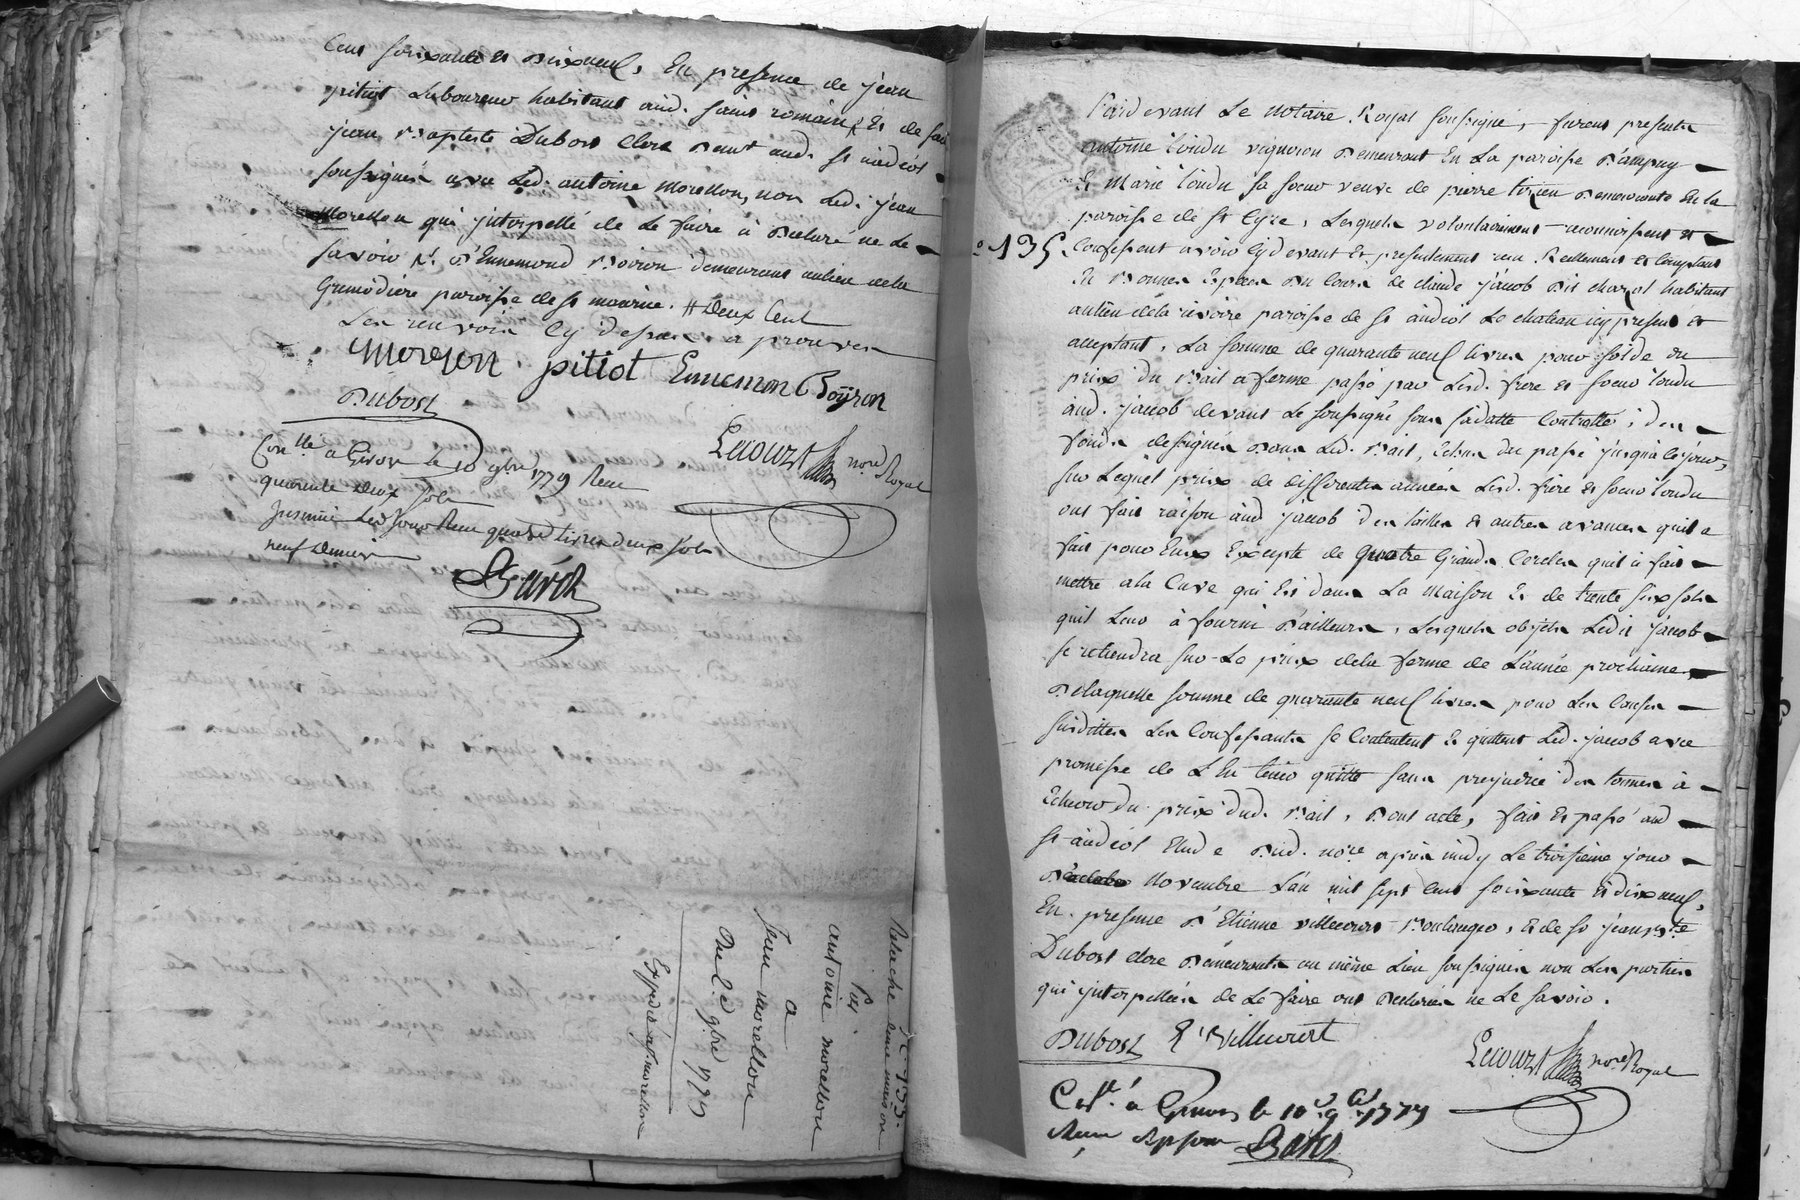 Cent soixante et dixneuf, En presence de jean
pitiot Laboureur habitant aud. saint romain, & de sr
jean Baptiste Dubost Clerc Demt aud. st andeol
soussignés avec Led. antoine morellon, non Led. jean
Morellon qui jnterpellé de Le faire à Declaré ne Le
savoir &. d'Ennemond Boiron demeurant au lieu de la
paroisse de st maurice. # Deux Cent
Les renvoix Cy dessus approuvés
morellon pitiot Ennemon Boyron
Dubost
Lecourt nore Royal
Conllé à Givors le 10 9bre 1779 Reçu
quarante Deux sols
Jnsinué Led jour Reçu quatre Livres deux sols
neuf Deniers
n° 133.
antoine morellon
a
Jean morellon
9bre 1779
Expedié a morellon
Pardevant Le Notaire Royal soussigné, furent presents
antoine vigneron Demeurant En La paroisse D'ampuy
Et Marie sa soeur veuve de pierre Demeurante En la
paroisse de st Cyre, Lesquels volontairement reconnoissent et
n° 135. Confessent avoir Cydevant Et presentement reçu Reellement et Comptant
En Bonnes Especes Du Cours de claude jacob Dit habitant
au lieu de la rivoire paroisse de st andeol Le chateau icy present et
acceptant, La somme de quarante neuf livres pour solde du
prix Du Bail a ferme passé par Lesd. frere et soeur
aud. jacob devant Le soussigné sous sa datte Controllé, des
fonds designés Dans Led. Bail, Echus du passé jusqu'à ce jour,
sur Lequel prix de differentes années Lesd. frere et soeur
ont fait raison aud jacob des tailles et autres avances qu'il a
fait pour Eux Excepté de quatre Grands Cercles qu'il à fait
mettre a la Cuve qui Est dans La Maison Et de trente six sols
qu'il Leur à fourni D'ailleurs, Lesquels objets Ledit jacob
se retiendra sur Le prix de la ferme de L'année prochaine,
De laquelle somme de quarante neuf livres pour Les Causes
susdittes Les Confessants se Contentent Et quittent Led. jacob avec
promesse de L'En tenir quitte sans prejudice des termes à
Echeoir du prix dud. Bail, Dont acte, fait Et passé aud
st andéol Etude Dud. nore après midy Le troisieme jour
Novembre L'an mil sept Cent soixante et dixneuf,
En presence D'Etienne villecourt Boulanger, & de sr jean Bte
Dubost clerc Demeurants au même Lieu soussignés non Les parties
qui jnterpellées de Le faire ont Declarées ne Le savoir.
Dubost E Villecourt
Lecourt nore Royal
Cellé à Givors le 10 9bre 1779
Reçu sept sous